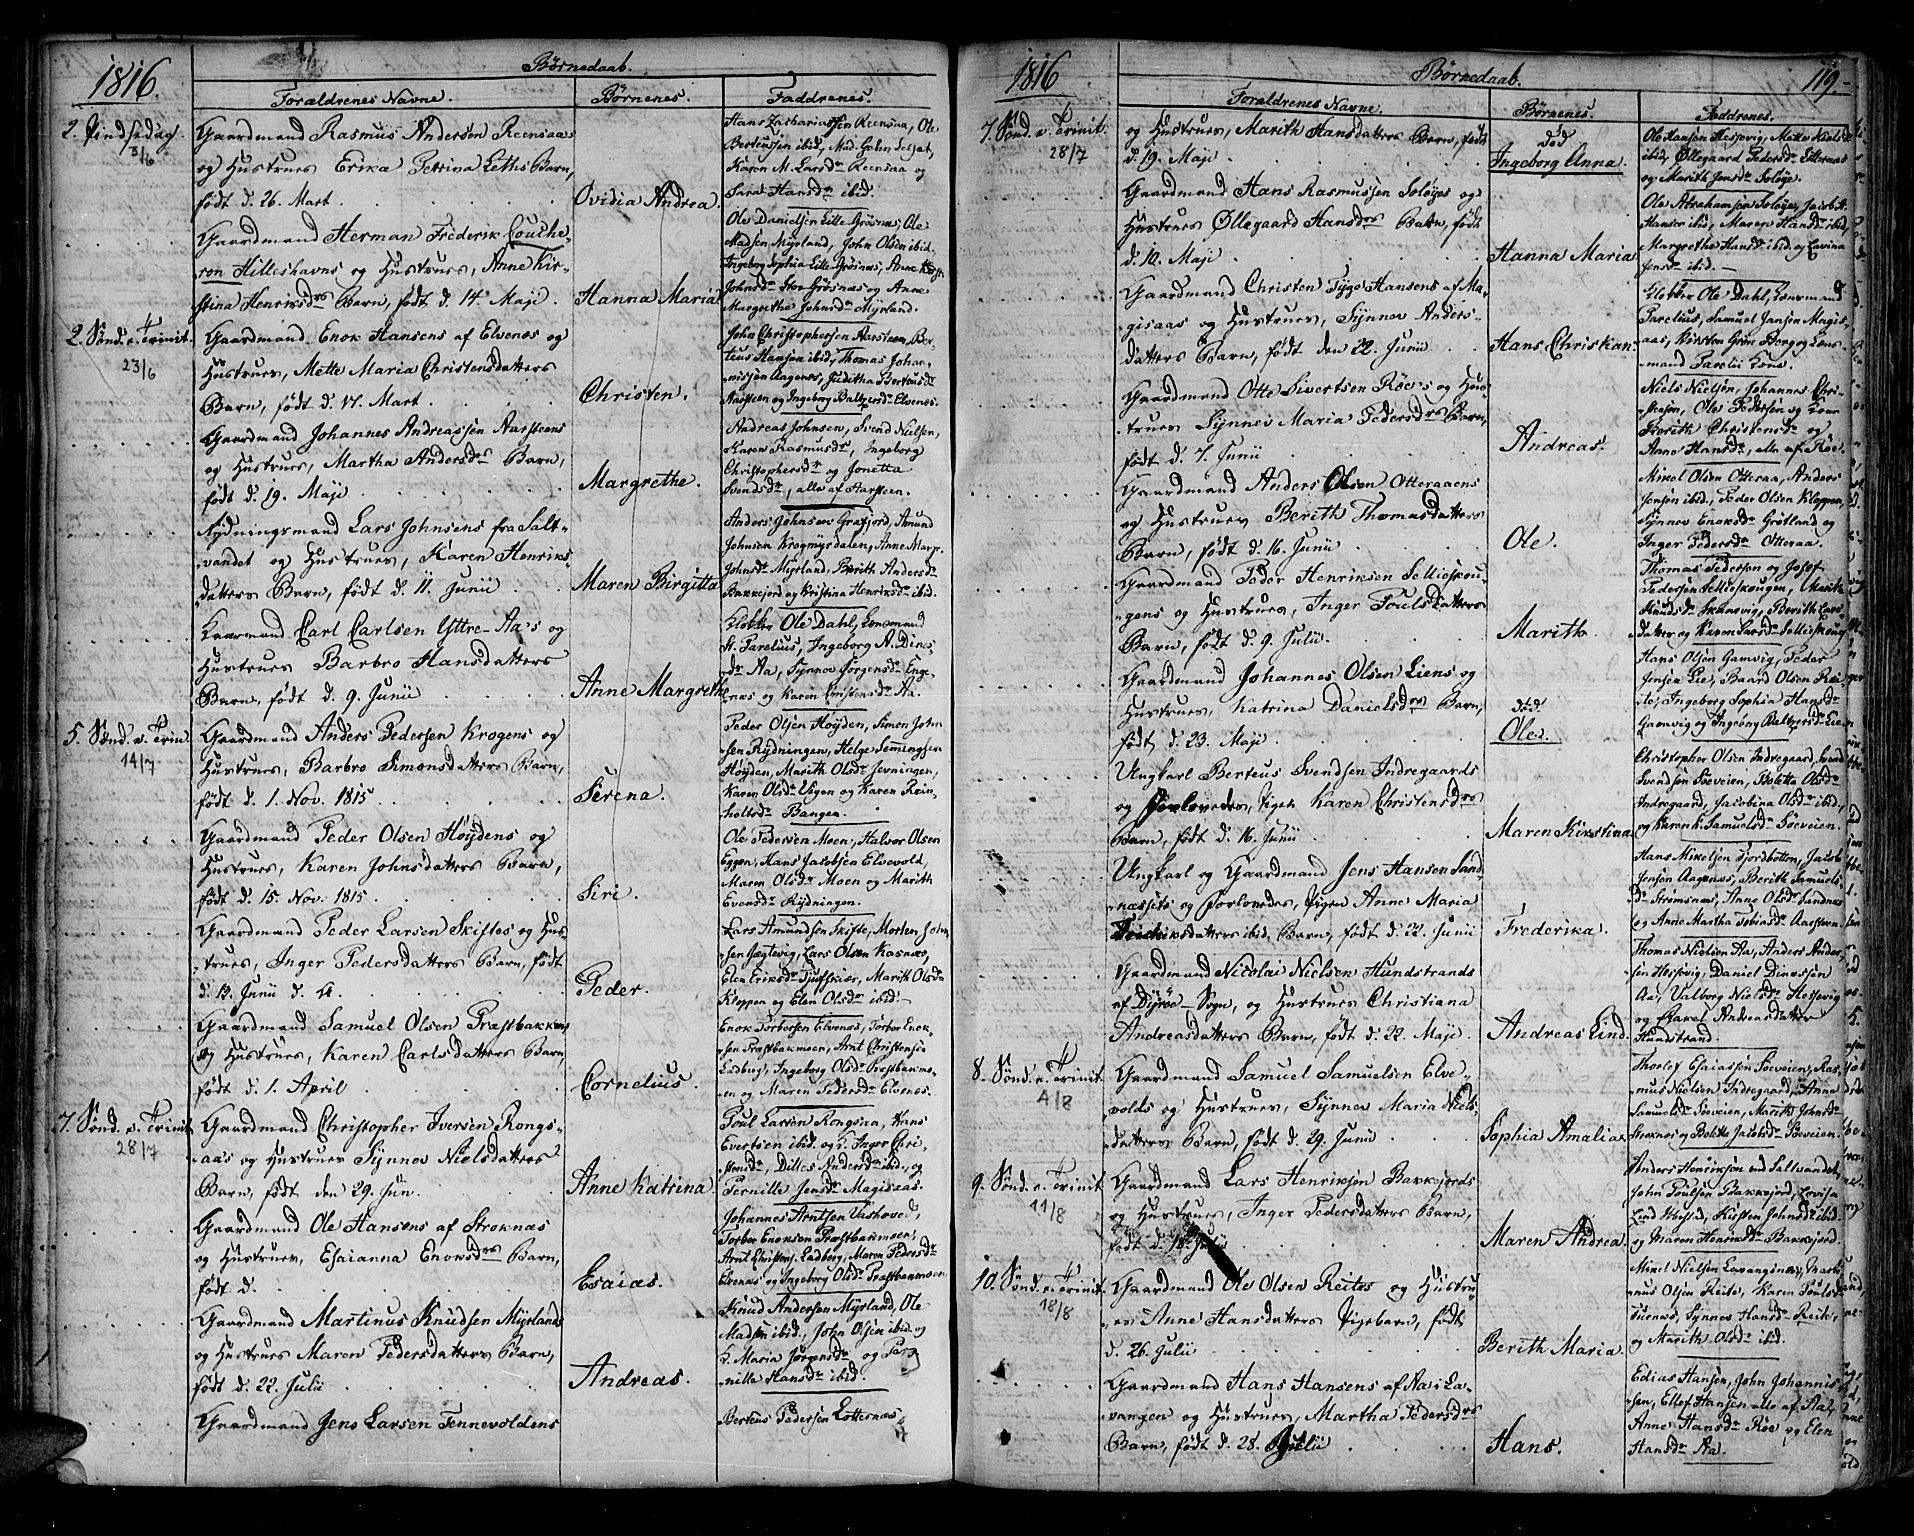 1816.
Børnedaab.
Forældrenes Navne.
Børnenes.
Faddrenes.
2. Pindsedag.
3/6
Gaardmand Rasmus Andersøn Reensaas
og Hustrues Erika Petrina Leths Barn,
født d. 26. Mart.
Ovidia Andrea.
Hans Zachariassen Reensaa, Ole
Bertensen ibid, Mad. Gohn Seljet,
Karen M. Larsdr Reensaa og
Sara Hansdr ibid.
Gaardmand Herman Frederik Couche-
ron Hilleshavns og Hustrues, Anne Kir-
stina Henriksdrs Barn, født d. 14 Maji.
Hanna Maria
Ole Danielsen Lille-Grøsnæs, Ole
Madsen Myrland, John Olsen ibid
Ingeborg Sophia Lille-Grøsnæs, Anne
Johnsdr Stor-Grøsnæs og Anne
Margrethe Johnsdr Myrland.
2. Sønd. e. Trinit.
23/6
Gaardmand Enok Hansens af Elvenæs og
Hustrues, Mette Maria Christensdatters
Barn, født d. 17. Mart.
Christen.
John Christophersen Aarsteen, Ber-
teus Hansen ibid, Thomas Johan-
nissen Aagenæs, Juditha Berteusdr
Aarsteen og Ingeborg Baltzersdr Elvenæs.
Gaardmand Johannes Andreassen Aarsteens
og Hustrues, Martha Andersdrs Barn,
født d. 19. Maji
Margrethe.
Andreas Johnsen, Svend Nielsen,
Karen Rasmusdr, Ingeborg
Christophersdr og Jonetta
Svendsdr, alle af Aarsteen.
Rydningsmand Lars Johnsens fra Salt-
vandet og Hustrues, Karen Henriks-
datters Barn, født d. 11. Junii
Maren Birgitta
Anders Johnsen Grafjord, Amund
Johnsen Krogmyrdalen, Anne Marg.
Johnsdr Myrland, Berith Andersdr
Bakkejord og Kristina Henriksdr ibid.
Gaarmand Carl Carlsen Yttre-Aa's og
Hustrues Barbro Hansdatters
Barn, født d. 9. Junii
Anne Margrethe
Klokker Ole Dahl, Lensmand
H. Parelius, Ingeborg A. Dines-
dr Aa, Synnev Jørgensdr Enge-
næs og Karen Cristensdr Aa.
5. Sønd. e. Trin.
14/7
Gaardmand Anders Pedersen Krogens og
Hustrues, Barbro Simonsdatters Barn,
født d. 1. Nov. 1815
Serena.
Peder Olsen Høyden, Simon John-
sen Rydningen, Helge Semingsen
Høyden, Marith Olsdr Jevningen,
Karen Olsdr Ulgen og Karen Rein-
holtsdr Bangen.
Gaardmand Peder Olsen Høydens og
Hustrues, Karen Johnsdatters Barn,
født d. 15. Nov. 1815
Siri.
Ole Pedersen Moen, Halvor Olsen
Eggen, Hans Jacobsen Elvevold,
Maren Olsdr Moen og Marith
Evensdr Rydningen.
Gaardmand Peder Larsen Skiftes og Hus-
trues, Inger Pedersdatters Barn, født
d. 13. Junii d. A.
Peder.
Lars Amundsen Skifte, Morten John-
sen Jægtevig, Lars Olsen Kasnæs,
Elen Eriksdr Tjuffskiær, Marith Olsdr
Kleppen og Elen Olsdr ibid.
Gaardmand Samuel Olsen Præstbakken
og Hustrues, Karen Carlsdatters Barn,
født d. 1. April
Cornelius.
Enok Torborsen Elvenæs, Torber Enok-
sen Præstbakmoen, Arnt Christensen
Ladberg, Ingeborg Olsdr Præstbakmo-
en og Maren Pedersdr Elvenæs.
7. Sønd. e. Trinit.
28/7
Gaardmand Christopher Iversen Rongs-
aas og Hustrues Synnev Nielsdatters
Barn, født den 29. Jun.
Anne Katrina.
Poul Larsen Rongsaa, Hans
Evertsen ibid og K. Inger Chri-
stensdr, Dilles Andersdr ibid., og
Pernille Jensdr Magisaas.
Gaardmand Ole Hansens af Stroknæs
og Hustrues, Esaianna Enoksdrs Barn,
født d.
Esaias.
Johannes Arntsen Vashoved,
Torber Enoksen Præstbakmoen,
Arnt Christens. Ladberg, Maren Pedersdr
Elvenæs og Ingeborg Olsdr Præstbakmoen
Gaardmand Martinus Knudsen Myrlands
og Hustrues Maren Pedersdatters Barn,
født d. 22. Julii
Andreas.
Knud Andersen Myrland, Ole
Madsen ibid., John Olsen ibid. og
K. Maria Jørgensdr og Per-
nille Hansdr ibid.
Gaardmand Jens Larsen Tennevoldens
Berteus Pedersen Lotternæs
1816
Børnedaab.
119.
Forældrenes Navne.
Børnenes.
Faddrenes.
7. Sønd. e. Trinit.
28/7
og Hustrues, Marith Hansdatters Barn, født
d. 19. Maji
død
Ingeborg Anna.
Ole Hansen Hessevig, Mette Nielsdr
ibid, Øllegaard Pedersdr Lotternæs
og Marith Jensdr Soløye.
Gaardmand Hans Rasmussen Soløyes og
Hustrues Øllegaard Hansdrs Barn, født
d. 10. Maji
Hanna Maria
Ole Abrahamsen Soløye, Jacob A.
Hansen ibid, Maren Hansdr ibid,
Margrethe Hansdr ibid. og Lovina
Jensdr ibid.
Gaardmand Christen Tyge Hansens af Ma-
gisaas og Hustrues, Synnev Anders-
datters Barn, født den 22. Junii
Hans Christian.
Klokker Ole Dahl, Lensmand
Parelius, Samuel Jansen Magis-
aas, Kirsten Grøn Berg og Lens-
mand Parelii Kone.
Gaardmand Otte Sivertsen Røe's og Hus-
trues Synnev Maria Pedersdrs Barn,
født d. 7. Junii
Andreas.
Niels Nielsen, Johannes Chri-
stensen, Ole Pedersen og Kone
Berith Christensdr og
Anne Hansdr, alle af Røe.
Gaardmand Anders Olsen Otteraaens
og Hustrues Berith Thomasdatters
Barn, født d. 16. Junii
Ole.
Mikel Olsen Otteraa, Anders
Jensen ibid, Peder Olsen Kleppen,
Synnev Enoksdr Grøtland og
Inger Pedersdr Otteraa.
Gaardmand Peder Henriksen Sellieskou-
gens og Hustrues, Inger Poulsdatters
Barn, født d. 9. Julii.
Marith.
Thomas Pedersen og Josef
Pedersen Sellieskougen, Marith
Knudsdr Skaavig, Berith Lars-
datter og Karen Larsdr Sellieskoug
Gaardmand Johannes Olsen Liens og
Hustrues, Katrina Danielsdrs Barn,
født d. 23. Maji
død
Ole.
Hans Olsen Gamvig, Peder
Jensen Lie, Baard Olsen Rei-
te, Ingeborg Sophia Hansdr
Gamvig og Ingeborg Baltzersdr Lien
Ungkarl Berteus Svendsen Indregaards
og Forlovedes, Pigen Karen Christensdrs
Barn, født d. 16. Junii
Maren Kirstina.
Christopher Olsen Indregaard, Svend
Svendsen Søeveien, Boletta Olsdr
Indregaard, Jacobina Olsdr ibid.,
og Karen K. Samuelsdr Søeveien.
Ungkarl og Gaardmand Jens Hansen Sand-
næssets og Forlovedes, Pigen Anne Maria
Frideriksdatters ibid. Barn, født d. 22. Junii
Frederika.
Hans Mikelsen Fjordbotten, Jacob
Jensen Aagenæs, Berith Samuels-
dr Strømsnæs, Anne Olsdr Sandnæs
og Anne Martha Tobiasdr Aarsteen
Gaardmand Nicolai Nielsen Hundstrands
af Dyrøe-Sogn, og Hustrues Christiana
Andreasdatters Barn, født d. 22. Maji
Andreas Lind.
Thomas Nielsen Aa, Anders Ander-
sen Hessevig, Daniel Dinessen
Aa, Valborg Nielsdr Hessevig
og Andreasdatter
Hundstrand.
8. Sønd. e. Trinit.
4/8
Gaardmand Samuel Samuelsen Elve-
volds og Hustrues, Synnev Maria Niels-
datters Barn, født d. 29. Junii
Sophia Amalia
Thorlef Esaiassen Søeveien, Ras-
mus Nielsen Indregaard, Anne
Samuelsdr Søeveien, Marith Johnsdr
Stroknæs og Boletta Jacobsdr Søeveien.
9. Sønd. e. Trinit.
11/8
Gaardmand Lars Henriksen Bakkejords
og Hustrues, Inger Pedersdatters Barn,
født d. 18. Julii
Maren Andrea.
Anders Henriksen ved Saltvandet,
John Poulsen Bakkejord, Lovisa
Lind Ibestad, Kirsten Johnsdr ibid.
og Maren Henriksdr Bakkejord.
10. Sønd. e. Trinit.
18/8
Gaardmand Ole Olsen Reites og Hustru-
es Anne Hansdatters Pigebarn, født
d. 26. Julii
Berith Maria.
Mikel Nielsen Lavangsnæs, Marti-
nus Olsen Reite, Karen Poulsdr
Furnæs, Synnev Hansdr Reite,
og Marith Olsdr ibid.
Gaardmand Hans Hansens af Aa i La-
vangen og Hustrues, Martha Pedersdrs
Barn, født d. 28. Julii
Hans.
Edias Hansen, John Johannis-
sen, Ellef Hansen alle af Aa,
Anne Hansdr Røe og Elen
Hansdr Aa.